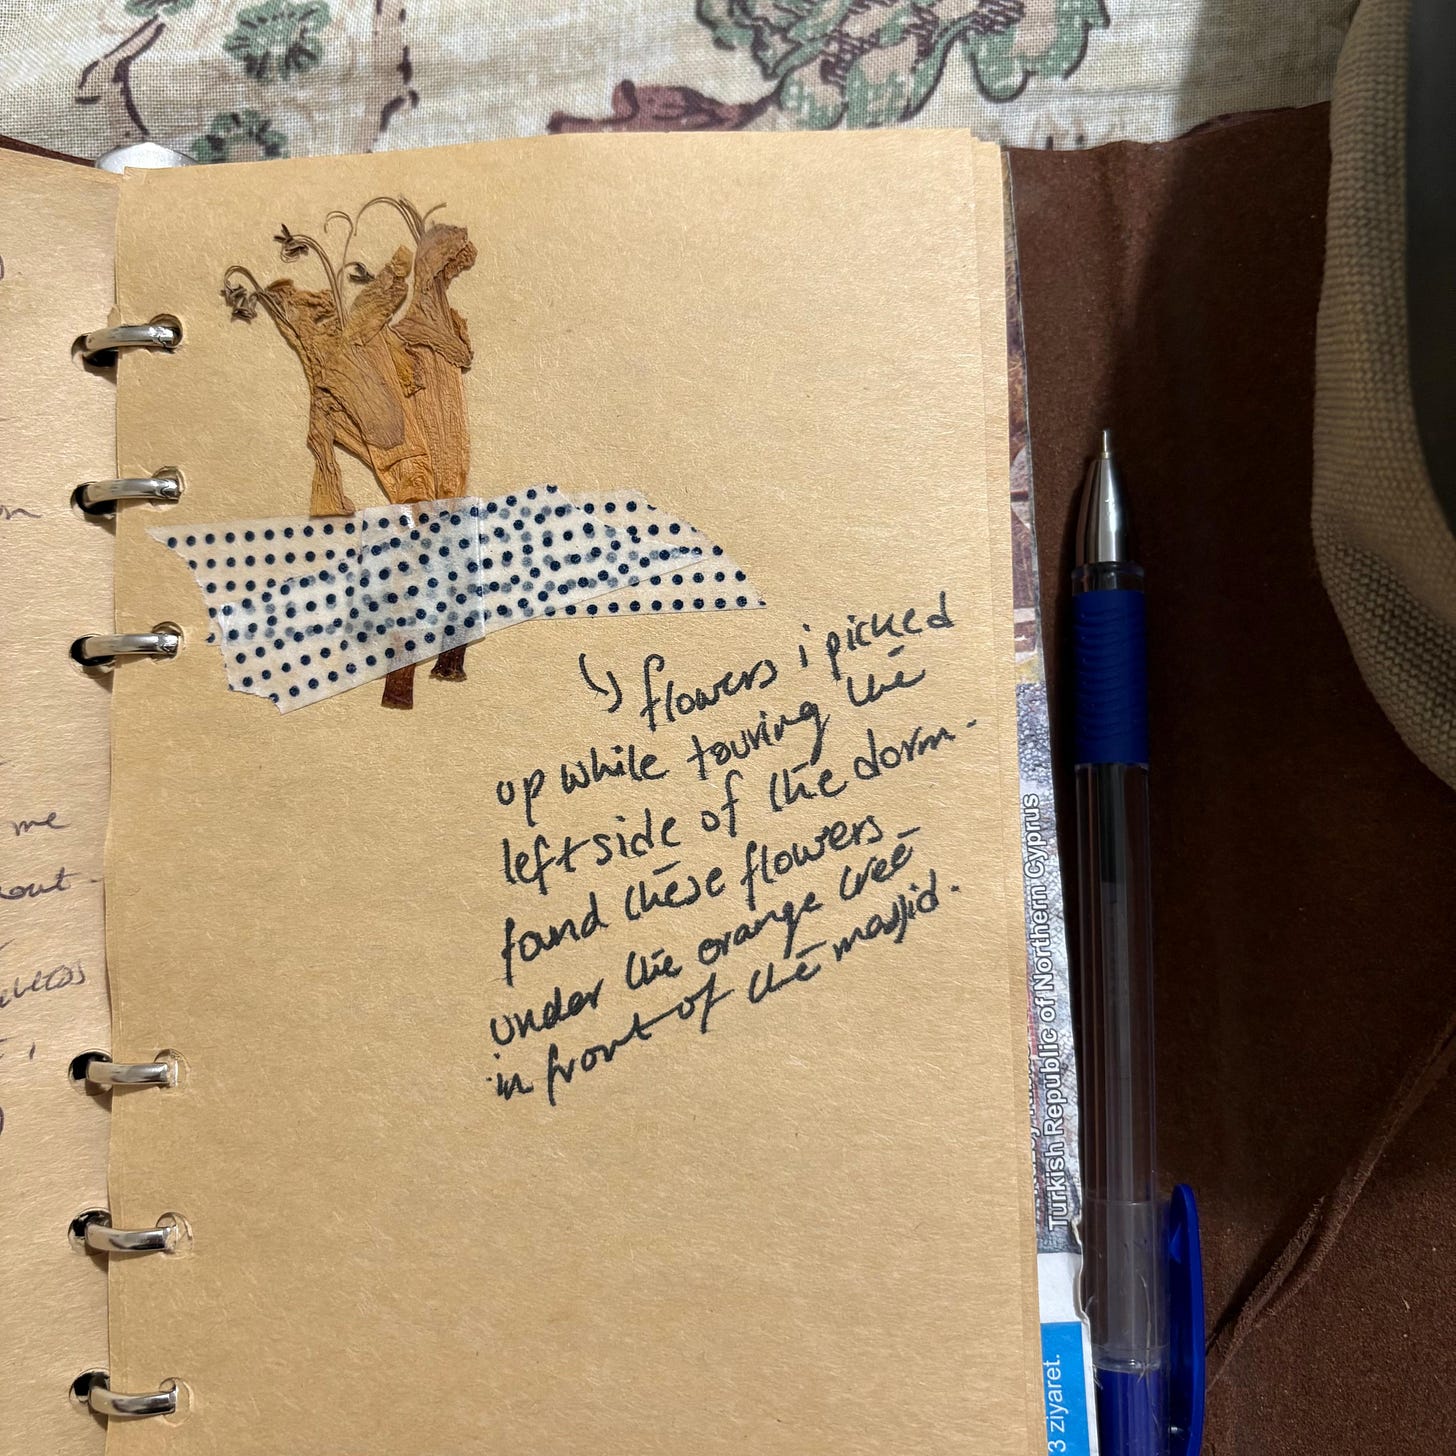 on
me
out.
↳ flowers i picked
up while touring the
left side of the dorm.
found these flowers
under the orange tree
in front of the masjid.
Turkish Republic of Northern Cyprus
3 ziyaret.